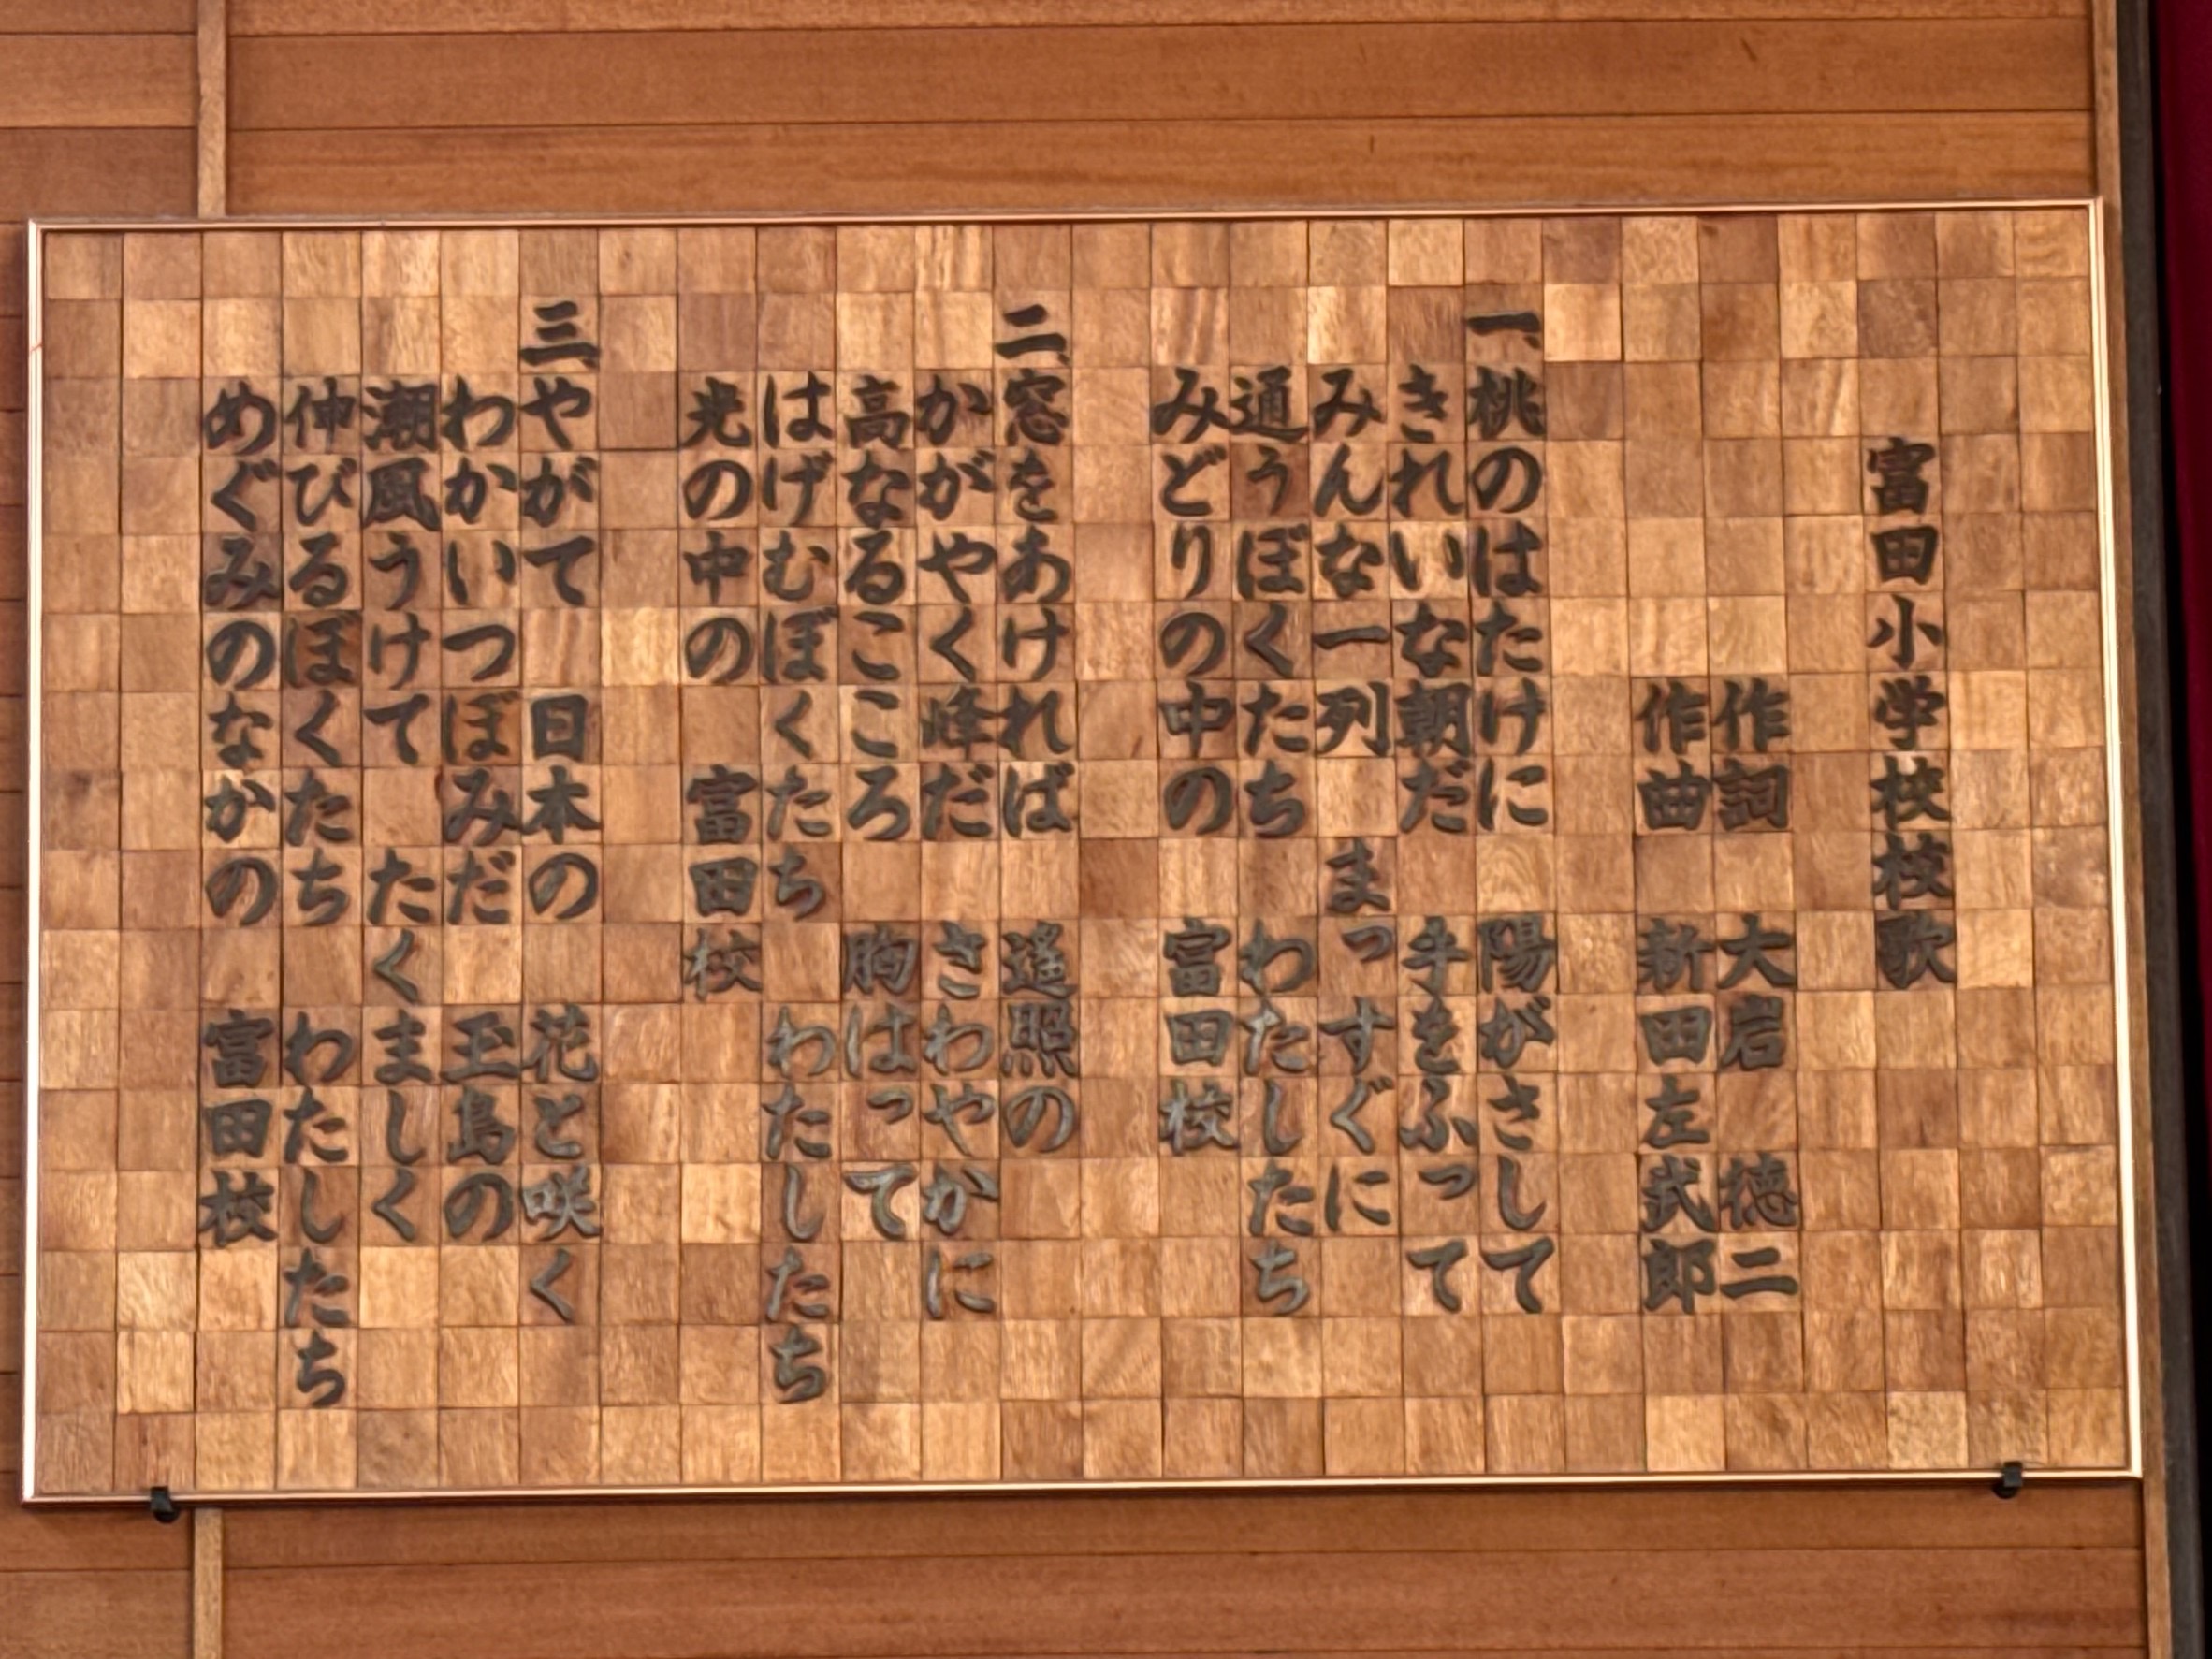 富田小学校校歌
作詞 大岩 徳二
作曲 新田左武郎
一、桃のはたけに 陽がさして
きれいな朝だ 手をふって
みんな一列 まっすぐに
通うぼくたち わたしたち
みどりの中の 富田校
二、窓をあければ 遙照の
かがやく峰だ さわやかに
高なるこころ 胸はって
はげむぼくたち わたしたち
光の中の 富田校
三、やがて 日本の 花と咲く
わかいつぼみだ 玉島の
潮風うけて たくましく
伸びるぼくたち わたしたち
めぐみのなかの 富田校